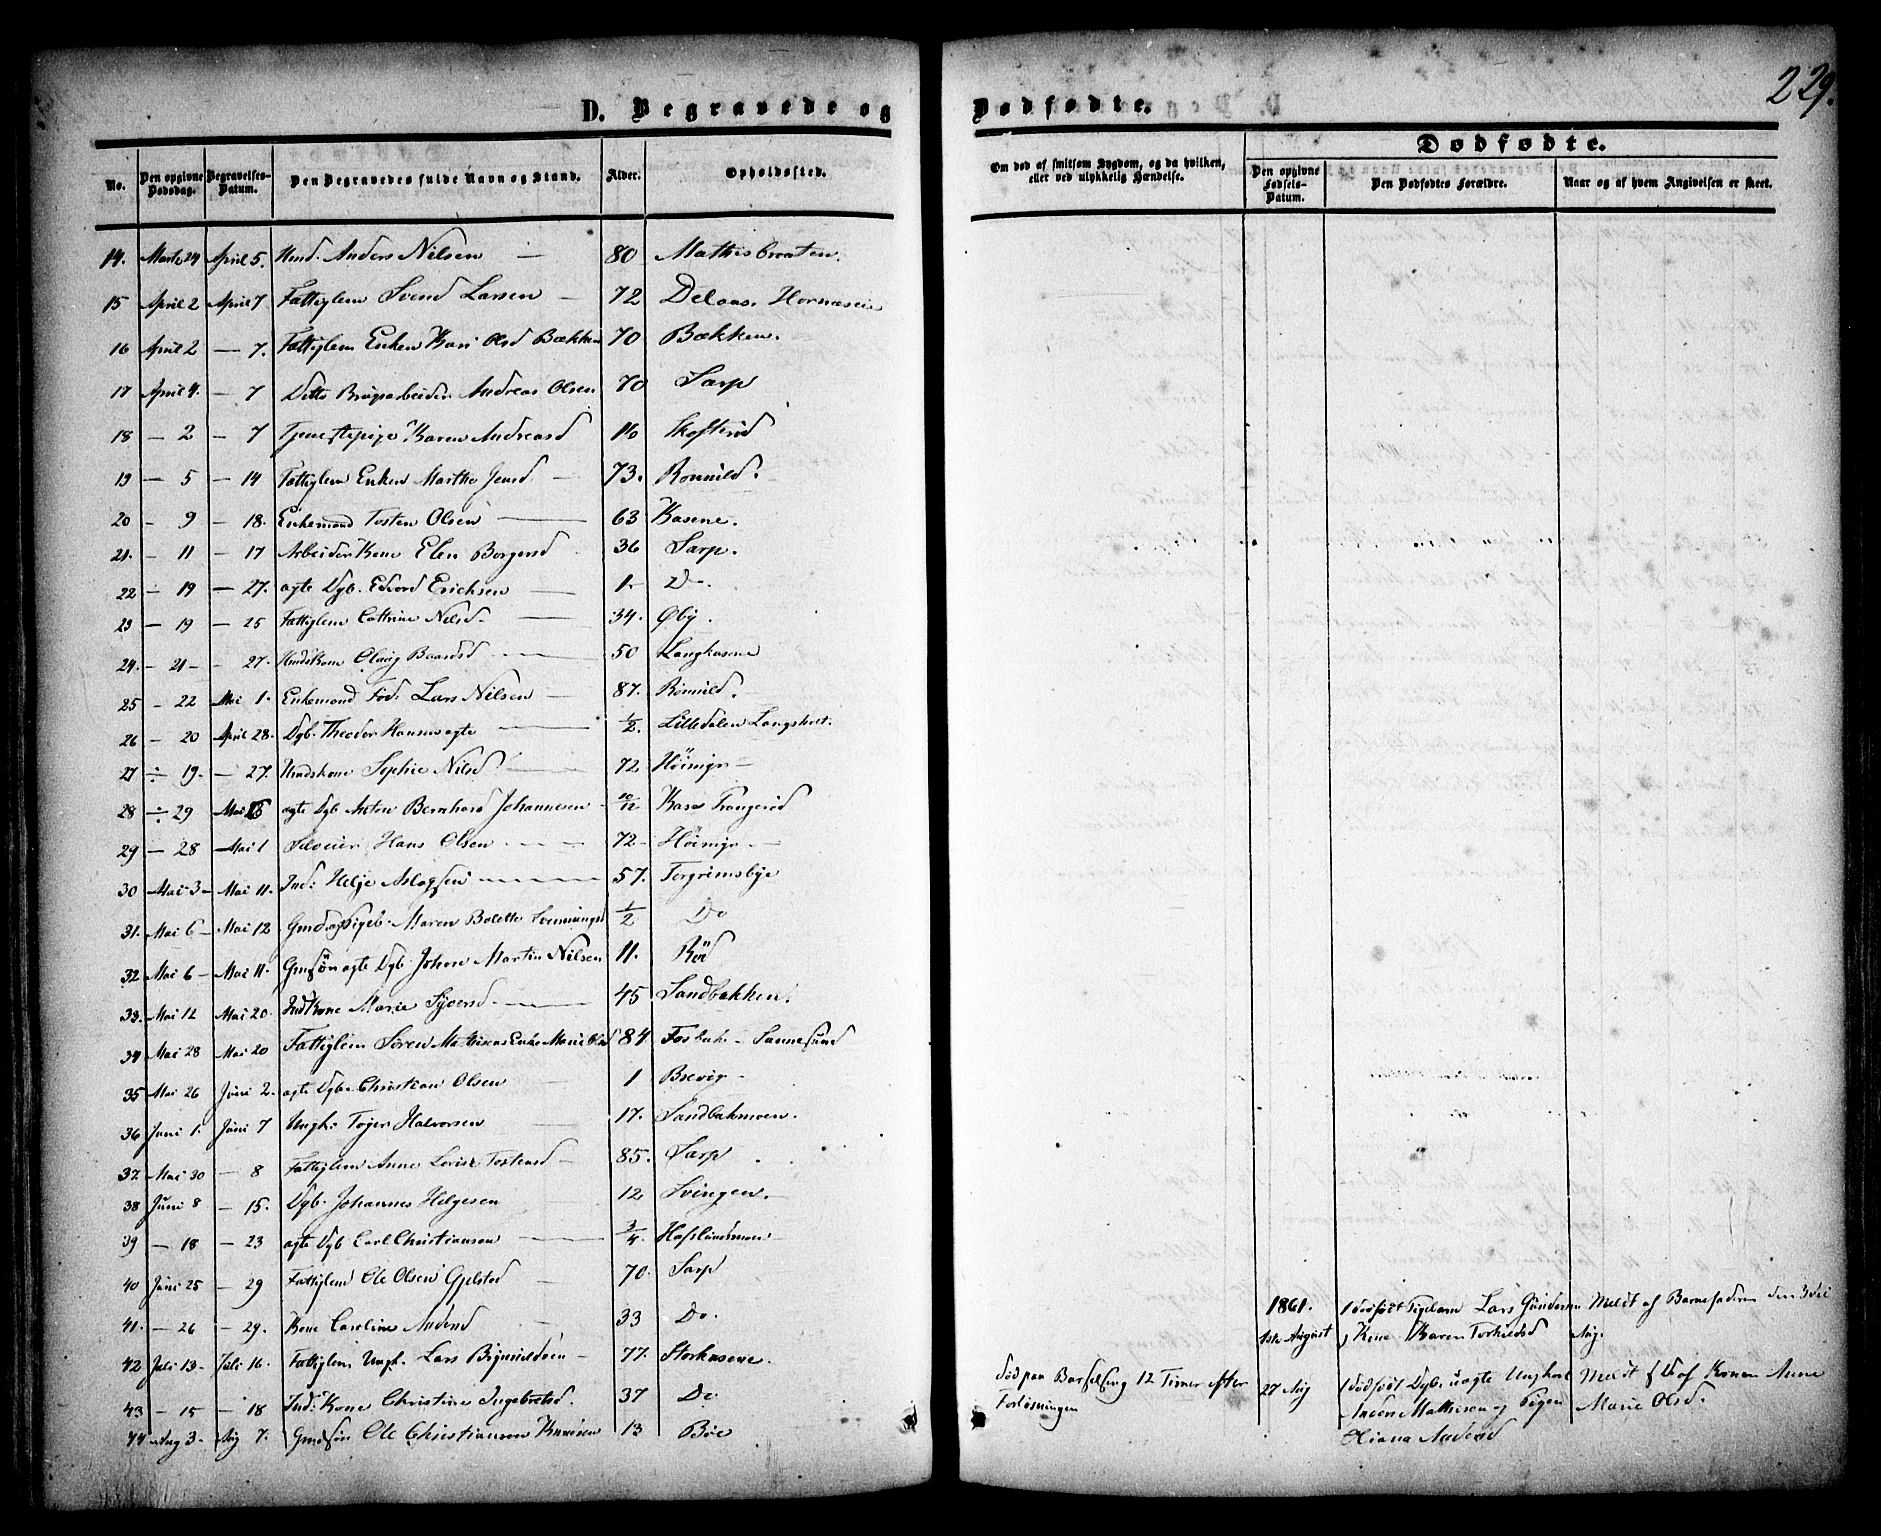 229.
D. Begravede og Dødfødte.
No. Den opgivne Dødsdag. Begravelses-Datum. Den Begravedes fulde Navn og Stand. Alder. Opholdssted. Om død af smitsom Sygdom, og da hvilken, eller ved ulykkelig Hændelse. Dødfødte. Den opgivne Fødsels-Datum. Den Dødfødtes Forældre. Naar og af hvem Angivelsen er skeet.
14. Marts 24 April 5. Huusmd. Anders Nilsen — 80 Mathisbraaten.
15 April 2 April 7 Fattiglem Svend Larsen — 72 Delaas. Hornæseie
16 April 2 — 7. Fattiglem Enken Kari Olsd Bækken 70 Bækken.
17 April 4. — 7 Ditto Brugsarbeider Andreas Olsen 70 Sarp
18 — 2 — 7 Tjenestepige Karen Andreasd 16 Skofterød
19 — 5 — 14 Fattiglem Enken Marthe Jensd — 73. Romnild.
20 — 9 — 18. Enkemand Tosten Olsen — 63 Kasene.
21. — 11 — 17 Arbeider Kone Elen Borgersd 36 Sarp.
22 — 19 — 27. ægte Dgb. Edvard Erichsen — 1. Do.
23 — 19 — 25 Fattiglem Cathrine Nilsd. — 34. Øby.
24. — 21 — 27. Huuskone Olaug Baardsd — 50 Langkasene
25 — 22 Mai 1. Enkemand Fød. Lars Nilsen — 87. Romnild.
26 — 20 April 28. Dgb. Theodor Hansen ægte — 1/2. Lilledalen Langsholt.
27 ÷ 19. — 27. Huuskone Sophie Nilsd — 72 Höinigr —
28 ÷ 29 Mai 6 ægte Dgb Anton Bernhard Johannesen 10/12 Kasa Trangerød
29 — 28 Mai 1 Selveier Hans Olsen — 72 Höinigr —
30 Mai 3 — Mai 11. Ind: Helje Aslagsen — 57. Torgrimsbye
31. Mai 6 — Mai 12 Gmd ægte Pigeb. Maren Bolette Svenningsd 1/2 Do
32 Mai 6 — Mai 11. Gmsön ægte Dgb Johan Martin Nilsen 11. Röd
33. Mai 12 Mai 20. Ind Kone Marie Syversd — 45 Sandbakken.
34 Mai 28 Mai 20 Fattiglem Sören Mathisens Enke Marie Olsd 84 Fosbak — Sannesund
35 Mai 26 Juni 2. ægte Dgb. Christian Olsen — 1 Brevig —
36 Juni 1. Juni 7 Ungk: Tøger Halvorsen 17. Sandbakmoen.
37. Mai 30 — 8 Fattiglem Anne Lovise Tostensd — 85. Sarp
38 Juni 8 — 15. Dgb. Johannes Helgesen 12 Svingen.
39 — 18 — 23 ægte Dgb Carl Christiansen — 3/4 Hafslundsmoen
40 Juni 25 — 29 Fattiglem Ole Olsen Gjelstad — 70. Sarp
41. — 26 — 29. Kone Caroline Andersd 33 Do.
42 Juli 13 — Juli 16. Fattiglem Ungk. Lars — 77. Storkasene.
43 — 15 — 18 Ind: Kone Christine Ingebretsd. 37 Do
44 Aug 3 — Aug 7. Gmdsön Ole Christiansen Knudsen 13 Böe
1861. 1ste August 1 dødfødt Pigebarn Lars Gundersen
og Kone Karen Torkildsd
Meldt af Barnefaderen den 3die
Aug.
Død paa Barselseng 12 Timer efter
Forløsningen
27 Aug 1 dødfødt Dgb. uægte Ungkarl
Mathisen og Pigen
Andersd
Meldt af Konen Anne
Marie Olsd.